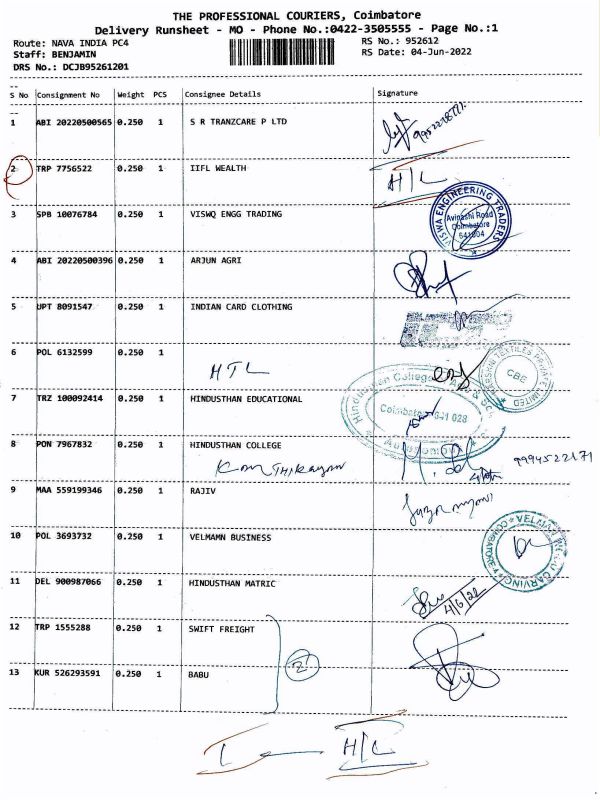 THE PROFESSIONAL COURIERS, Coimbatore
Delivery Runsheet - MO - Phone No.:0422-3505555 - Page No.:1
Route: NAVA INDIA PC4
RS No.: 952612
Staff: BENJAMIN
RS Date: 04-Jun-2022
DRS No.: DCJB95261201
S No Consignment No Weight PCS Consignee Details Signature
1 ABI 20220500565 0.250 1 S R TRANZCARE P LTD
2 TRP 7756522 0.250 1 IIFL WEALTH H/L
3 SPB 10076784 0.250 1 VISWQ ENGG TRADING
VISWA ENGINEERING TRADERS
Avinashi Road
Coimbatore
641004
4 ABI 20220500396 0.250 1 ARJUN AGRI
5 UPT 8091547 0.250 1 INDIAN CARD CLOTHING
6 POL 6132599 0.250 1
HTL
TEXTILES PRIVATE LIMITED
CBE
7 TRZ 100092414 0.250 1 HINDUSTHAN EDUCATIONAL
Hindusthan College
Coimbatore 641 028
Autonomous
8 PON 7967832 0.250 1 HINDUSTHAN COLLEGE
9994522171
9 MAA 559199346 0.250 1 RAJIV
10 POL 3693732 0.250 1 VELMAMN BUSINESS
11 DEL 900987066 0.250 1 HINDUSTHAN MATRIC
4/6/22
12 TRP 1555288 0.250 1 SWIFT FREIGHT
13 KUR 526293591 0.250 1 BABU
H/L